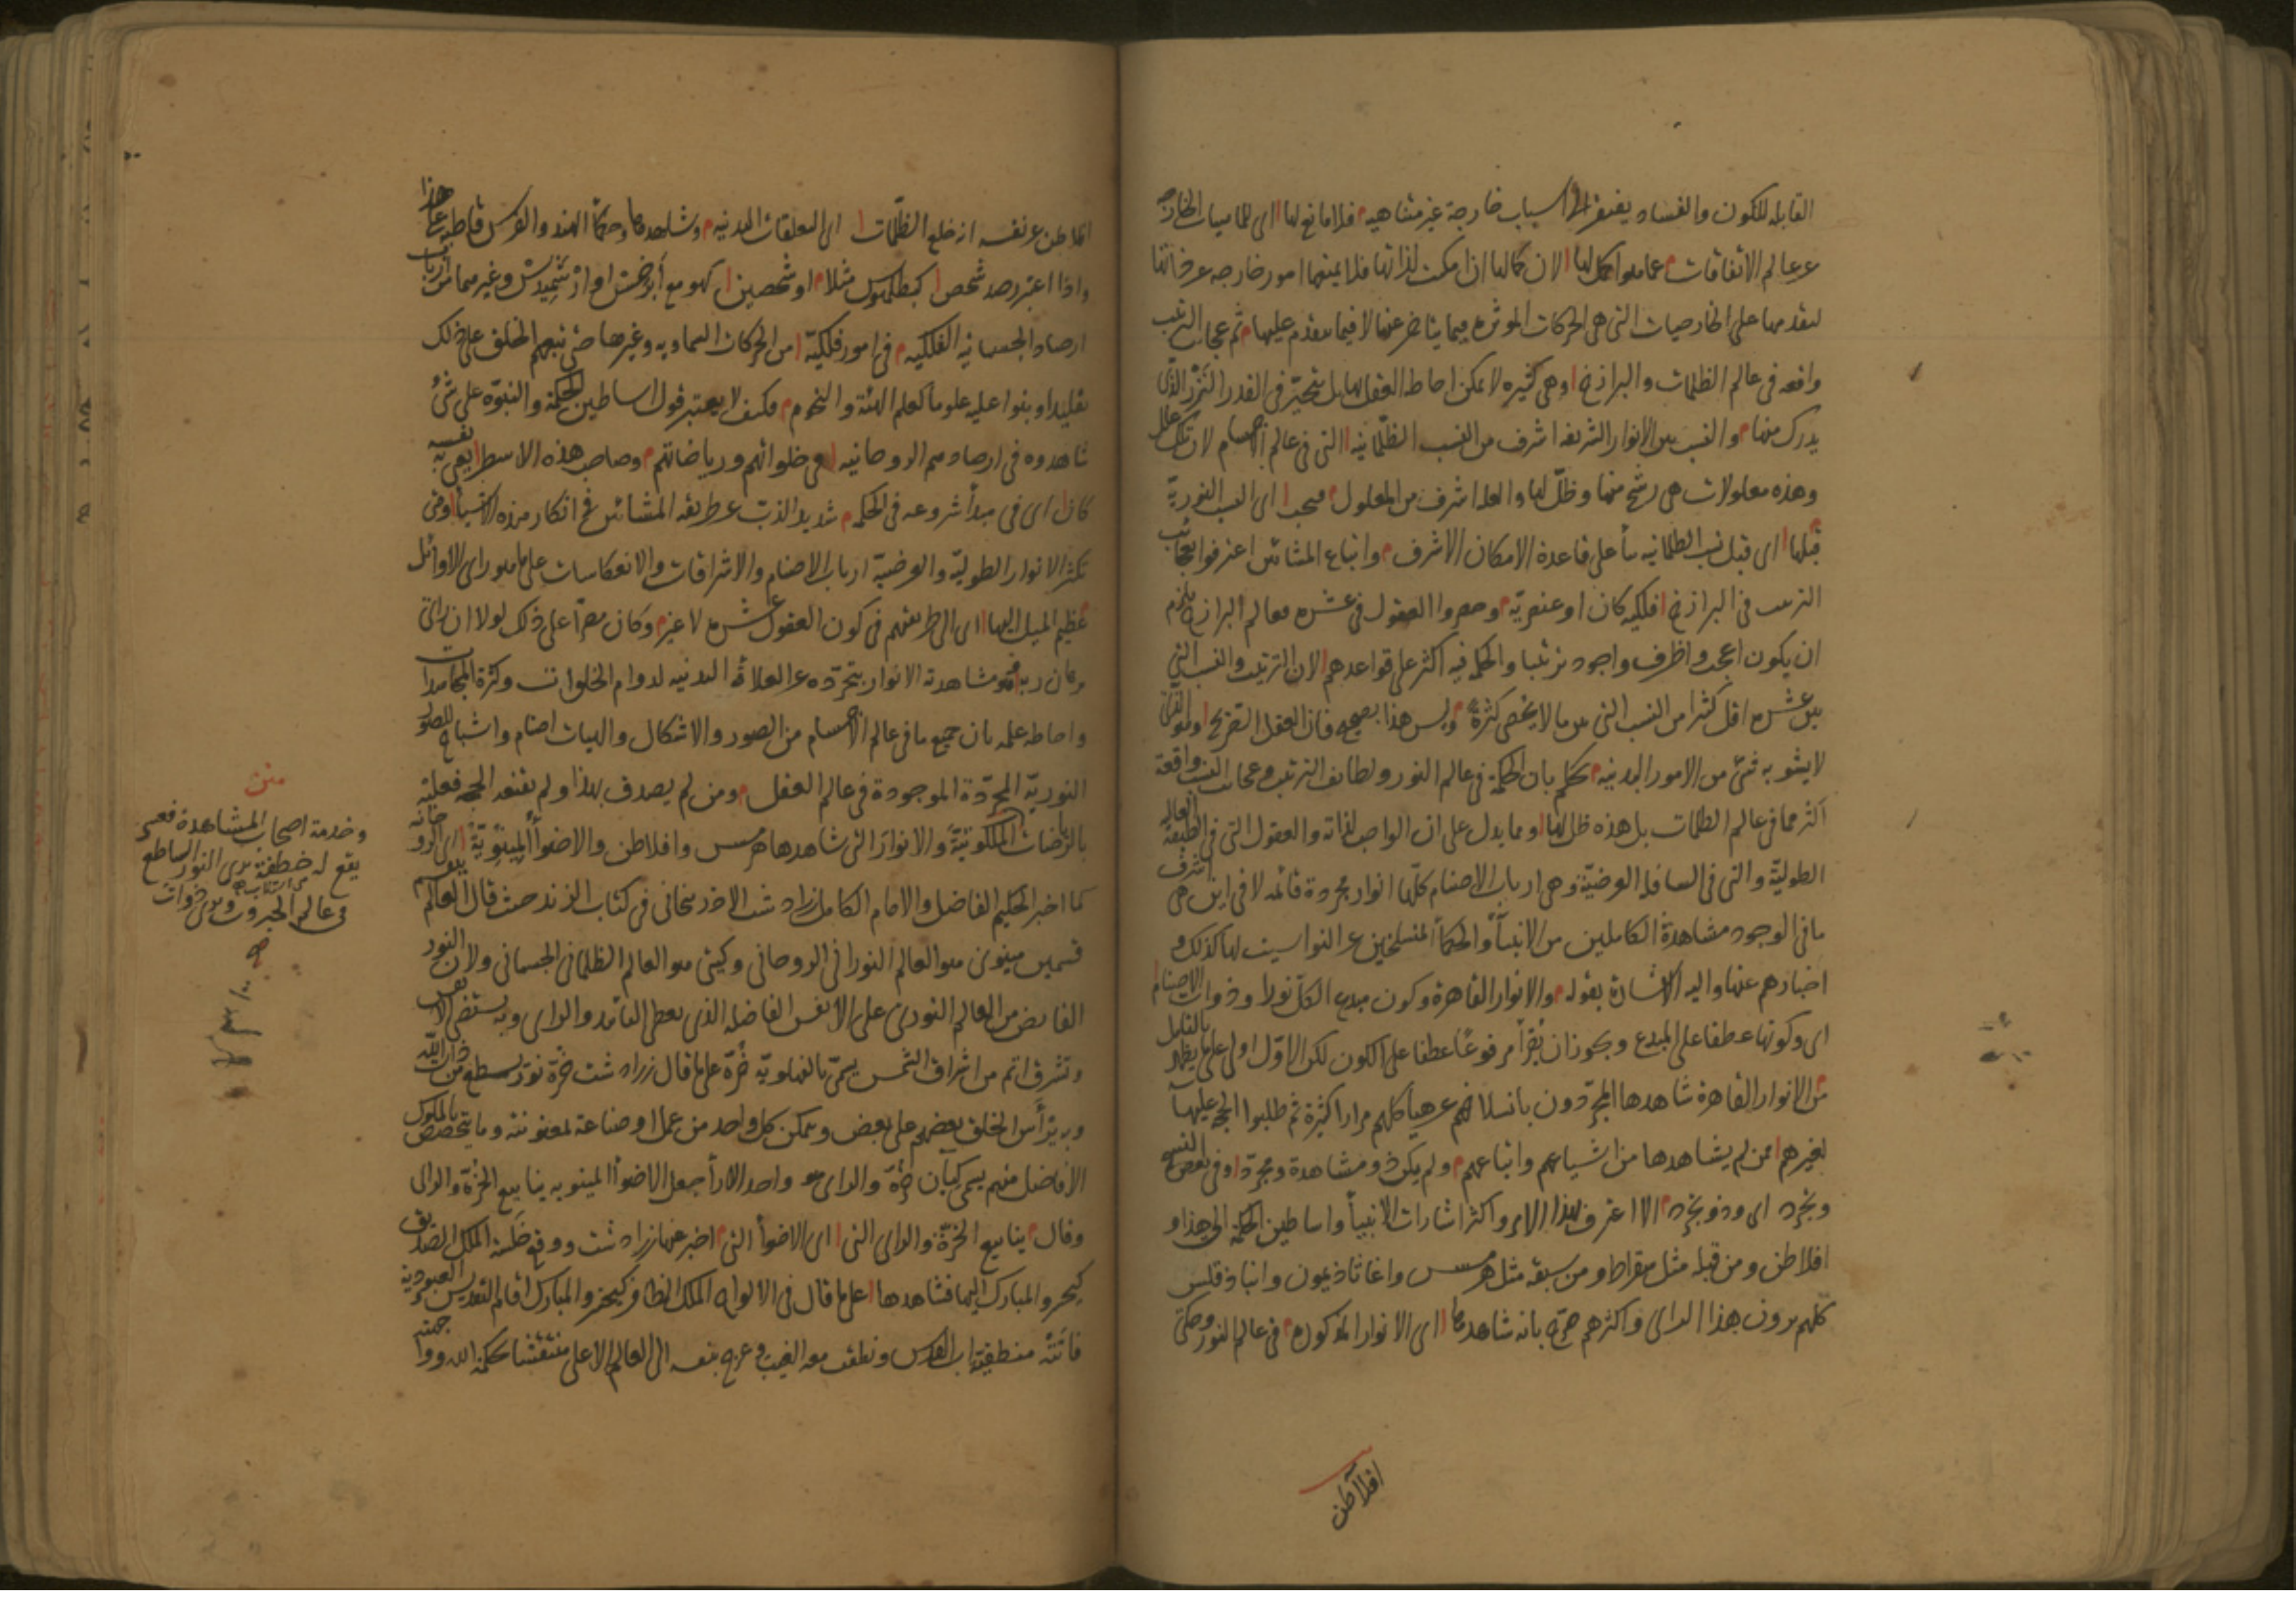 القابله للكون والفساد يفتقر الى اسباب خارجة غير متناهيه فلا مانع لها اى للماهيات الخارجة
عن عالم الاتفاقات عما هو اكمل لها لان كمالها اذا امكنت لذاتها فلا يمنعها امور خارجه عن ذاتها
لتقدمها على الخارجيات التى هى الحركات الموثره فيما يتاخر عنها لا فيما يتقدم عليها ثم عجائب الترتيب
واقعه فى عالم الظلمات والبرازخ وهى كثيره لا يمكن احاطه العقل بها بل يتحير فى القدر النزر الذى
يدرك منها والنسب بين الانوار الشريفه اشرف من النسب الظلمانيه التى فى عالم الاجسام لان تلك علل
وهذه معلولات هى رشح منها وظل لها والعله اشرف من المعلول فيجب اى النسب النوريّة
قبلها اى قبل نسب الظلمانيه بناً على قاعدة الامكان الاشرف واتباع المشائين اعترفوا بعجائب
الترتيب فى البرازخ فلكيه كان او عنصريّة وحصروا العقول فى عشره فعالم البرازخ يلزم
ان يكون اعجب واظرف واجود ترتيبا والحكمة فيه اكثر على قواعدهم لان الترتيب والنسب التى
بين عشره اقل كثيرا من النسب التى بين ما لا يحصى كثرةً وليس هذا بصحيح فان العقل الصريح وهو الذى
لا يشوبه شئ من الامور البدنيه يحكم بان الحكمة فى عالم النور ولطائف الترتيب وعجائب النسب واقعة
اكثر مما فى عالم الظلمات بل هذه ظل لها ومما يدل على ان الواجب لذاته والعقول التى فى الطبقة العالية
الطوليّة والتى فى السافله العرضيّة وهى ارباب الاصنام كلّها انوار مجردة قائمه لا فى اين هى اشرف
ما فى الوجود مشاهدة الكاملين من الانبيآء والحكمآء المنسلخين عن النواسيت لها كذلك و
اخبارهم عنها واليه الاشارة بقوله والانوار القاهرة وكون مبدع الكل نورا وذوات الاصنام
اى وكونها عطفا على المبدع ويجوز ان يُقرأ مرفوعًا عطفا على الكون لكن الاوّل اولى على ما يظهر بالتامل
من الانوار القاهرة شاهدها المجرّدون بانسلاخهم عن هياكلهم مرارا كثيرة ثم طلبوا الحجة عليها
لغيرهم ممن لم يشاهدها من اشياعهم واتباعهم ولم يكن ذو مشاهدة ومجرّد وفى بعض النسخ
وتجرّد اى وذو تجرّد الا اعترف بهذا الامر واكثر اشارات الانبيآء واساطين الحكمة الى هذا و
افلاطن ومن قبله مثل سقراط ومن سبقه مثل هرمس واغاثاذيمون وانباذقلس
كلهم يرون هذا الراى واكثرهم صرّح بانه شاهدها اى الانوار المذكورة فى عالم النور وحكى
افلاطن
افلاطن عن نفسه انه خلع الظلمات اى التعلقات البدنيه وشاهدها وحكمآء الهند والفرس قاطبة على هذا
واذا اعتبر رصد شخص كبطلميوس مثلا او شخصين كهو مع أبرخس او ارشميدس وغيرهما من ارباب
ارصاد الجسمانيه الفلكيه فى امور فلكيّة من الحركات السماويه وغيرها حتى تبعهم الخلق على ذلك
تقليدا وبنوا عليه علوما كعلم الهيئة والنجوم فكيف لا يعتبر قول اساطين الحكمة والنبوّة على شئ
شاهدوه فى ارصادهم الروحانيه فى خلواتهم ورياضاتهم وصاحب هذه الاسطر يعنى به نفسه
كان اى فى مبدأ شروعه فى الحكمه شديد الذبّ عن طريقه المشائين فى انكار هذه الاشيآء وفى
تكثر الانوار الطوليّة والعرضيّة ارباب الاصنام والاشراقات والانعكاسات على ما هو راى الاوائل
عظيم الميل اليها اى الى طريقتهم فى كون العقول عشره لا غير وكان مصرّاً على ذلك لولا ان راى
برهان ربه وهو مشاهدته الانوار بتجرّده عن العلائق البدنيه لدوام الخلوات وكثرة المجاهدات
واحاطه علمه بان جميع ما فى عالم الاجسام من الصور والاشكال والهيات اصنام واشباح للصور
النوريّة المجرّدة الموجودة فى عالم العقل ومن لم يصدق بهذا ولم يقنعه الحجه فعليه
بالرياضات
الملكوتيّة والانوار التى شاهدها هرمس وافلاطن والاضوآء المينويّة اى الروحانية
كما اخبر الحكيم الفاضل والامام الكامل زرادشت الاذربيجانى فى كتاب الزند حيث قال العالم ينقسم
قسمين مينوى هو العالم النورانى الروحانى وكيتى هو العالم الظلمانى الجسمانى ولان النور
الفايض من العالم النورى على الانفس الفاضله الذى يعطى التأييد والراى وبه يستضئ الانفس
وتشرق اتم من اشراق الشمس يسمّى بالفهلويّه خُرّة على ما قال زرادشت خرّة نور يسطع من ذات الله
وبه يرأس الخلق بعضهم على بعض ويتمكن كل واحد من عمل او صناعة بمعونته وما يتخصص بالملوك
الافاضل منهم يسمى كيان خرّة والراى جعل الاضوآء المينويه ينابيع الخرّة والراى
وقال ينابيع الخرّة والراى التى اى الاضوآء التى اخبر عنها زرادشت ووقع خلسة الملك الصديق
كيخسرو المبارك اليها فشاهدها على ما قال فى الالواح الملك الظافر كيخسرو المبارك اقام التقديس والعبودية
فاتته منطقية اب القدس ونطقت معه الغيب وعرج بنفسه الى العالم الاعلى منتقشا بحكمة الله وواجهته
متن
وخدمة اصحاب المشاهدة فعسى
يقع له خطفة يرى النور الساطع
فى عالم الجبروت ويرى ذوات